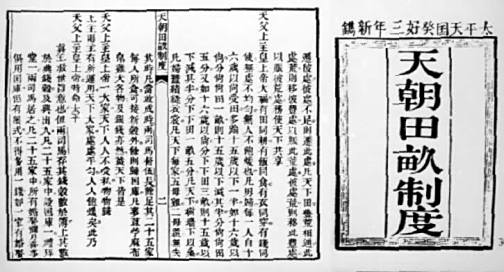 太平天囯癸好三年新鐫
天朝田畝制度
遷彼處彼處不足則遷此處凡天下田豐荒相通此
處荒則移彼豐處以賑此荒處彼處荒則移此豐處
以賑彼荒處務使天下共享
天父上主皇上帝大福有田同耕有飯同食有衣同穿有錢同
使無處不均勻無人不飽煖也凡男婦每一人自十
六歲以尚受田多踰十五歲以下一半如十六歲以
尚分尚尚田一畝則十五歲以下減其半分尚尚田
五分又如十六歲以尚分下下田三畝則十五歲以
下減其半分下下田一畝五分凡天下樹墻下以桑
凡婦蠶績縫衣裳凡天下每家五母雞二母彘無失
天朝田畝制度 二
其時凡當收成時兩司馬督伍長除足其二十五家
每人所食可接新穀外餘則歸國庫凡麥豆苧麻布
帛雞犬各物及銀錢亦然蓋天下皆是
天父上主皇上帝一大家天下人人不受私物物歸
上主則主有所運用天下大家處處平勻人人飽煖矣此乃
天父上主皇上帝特命太平
真主救世旨意也但兩司馬存其錢穀數於簿上其數
於典錢穀及典出入凡二十五家中設國庫一禮拜
堂一兩司馬居之凡二十五家中所有婚娶彌月喜事
俱用國庫但有限式不得多用一錢如一家有婚娶